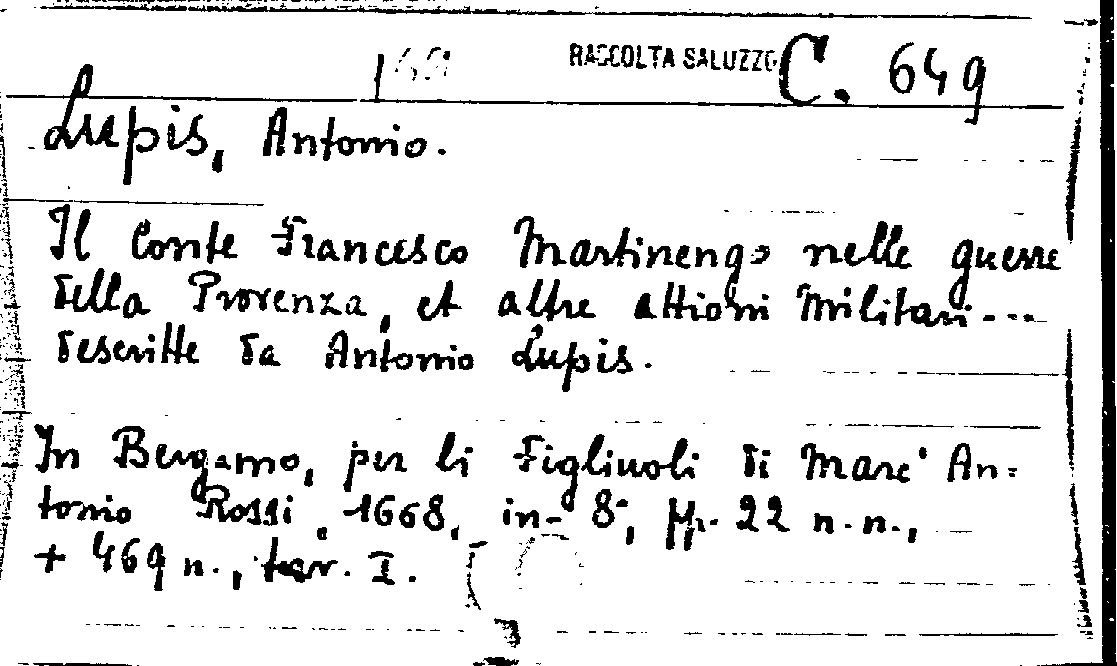 RACCOLTA SALUZZO C. 649
Lupis, Antonio.
Il Conte Francesco Martinengo nelle guerre
della Provenza, et altre attioni Militari...
descritte da Antonio Lupis.
In Bergamo, per li Figliuoli di Marc' An=
tonio Rossi, 1668, in-8°, pp. 22 n.n.,
+ 469 n., tav. I.